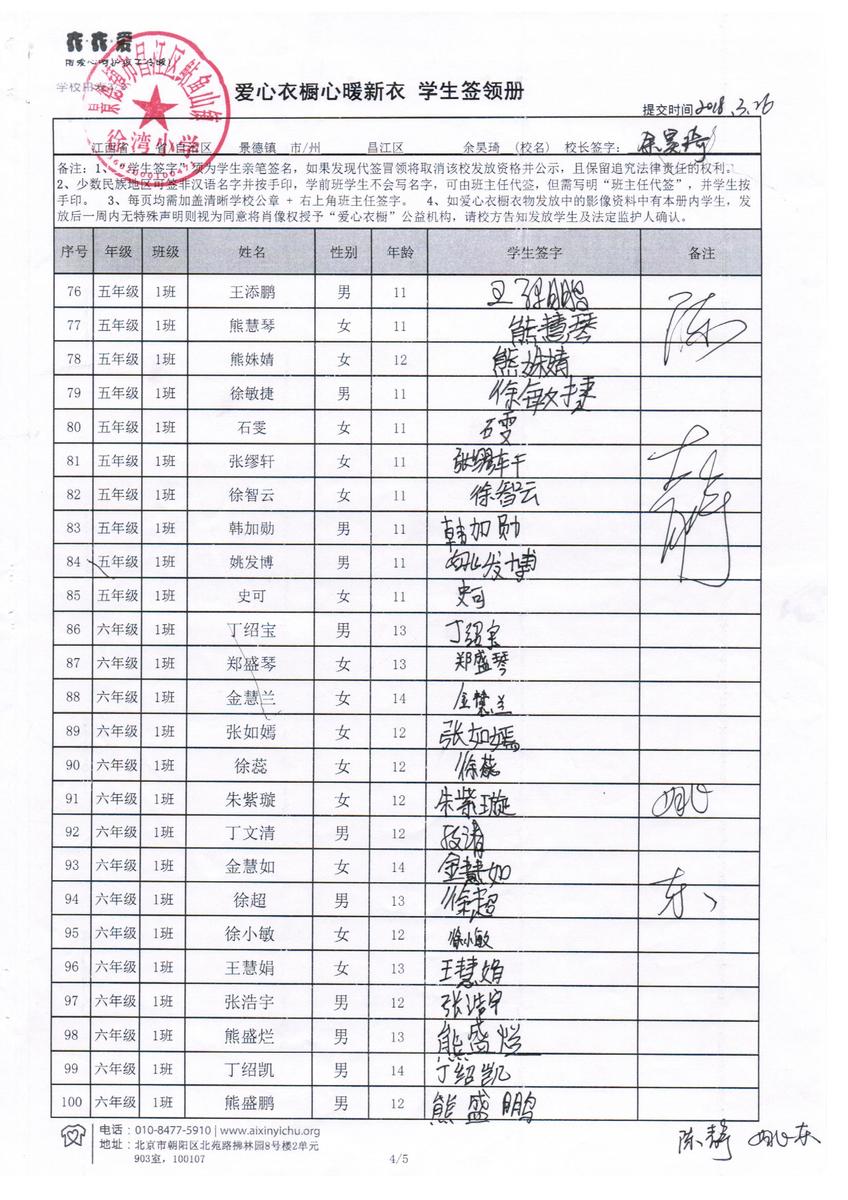 衣·衣·爱
爱心衣橱心暖新衣 学生签领册
提交时间 2018.3.26
江西省 省/自治区 景德镇 市/州 昌江区 余昊琦 (校名) 校长签字：
徐湾小学
备注：1、“学生签字”须为学生亲笔签名，如果发现代签冒领将取消该校发放资格并公示，且保留追究法律责任的权利。
2、少数民族地区可签非汉语名字并按手印，学前班学生不会写名字，可由班主任代签，但需写明“班主任代签”，并学生按
手印。 3、每页均需加盖清晰学校公章 + 右上角班主任签字。 4、如爱心衣橱衣物发放中的影像资料中有本册内学生，发
放后一周内无特殊声明则视为同意将肖像权授予“爱心衣橱”公益机构，请校方告知发放学生及法定监护人确认。
序号 年级 班级 姓名 性别 年龄 学生签字 备注
76 五年级 1班 王添鹏 男 11 王添鹏
77 五年级 1班 熊慧琴 女 11 熊慧琴
78 五年级 1班 熊姝婧 女 12 熊姝婧
79 五年级 1班 徐敏捷 男 11 徐敏捷
80 五年级 1班 石雯 女 11 石雯
81 五年级 1班 张缪轩 女 11 张缪轩
82 五年级 1班 徐智云 女 11 徐智云
83 五年级 1班 韩加勋 男 11 韩加勋
84 五年级 1班 姚发博 男 11 姚发博
85 五年级 1班 史可 女 11 史可
86 六年级 1班 丁绍宝 男 13 丁绍宝
87 六年级 1班 郑盛琴 女 13 郑盛琴
88 六年级 1班 金慧兰 女 14 金慧兰
89 六年级 1班 张如嫣 女 12 张如嫣
90 六年级 1班 徐蕊 女 12 徐蕊
91 六年级 1班 朱紫璇 女 12 朱紫璇
92 六年级 1班 丁文清 男 12
93 六年级 1班 金慧如 女 14 金慧如
94 六年级 1班 徐超 男 13 徐超
95 六年级 1班 徐小敏 女 12 徐小敏
96 六年级 1班 王慧娟 女 13 王慧娟
97 六年级 1班 张浩宇 男 12 张浩宇
98 六年级 1班 熊盛烂 男 13 熊盛烂
99 六年级 1班 丁绍凯 男 14 丁绍凯
100 六年级 1班 熊盛鹏 男 12 熊盛鹏
电话：010-8477-5910 | www.aixinyichu.org
地址：北京市朝阳区北苑路拂林园8号楼2单元
903室，100107
4/5